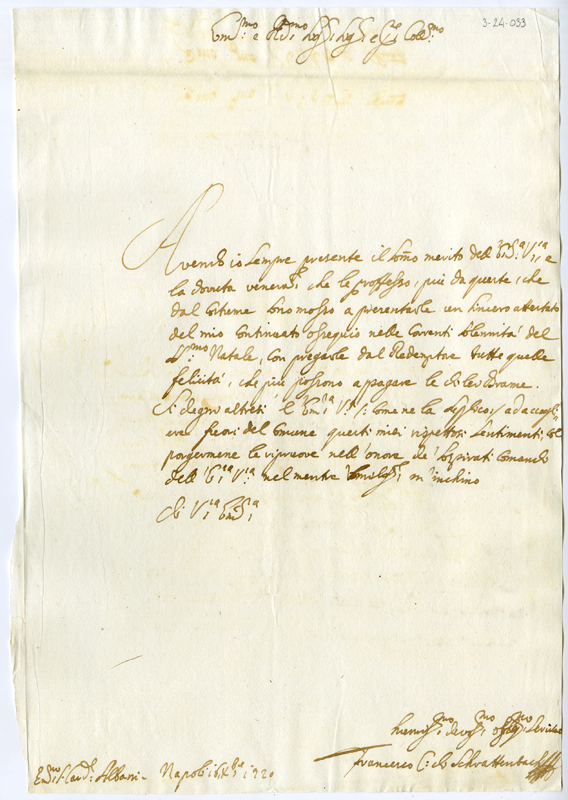 3-24-033
Em:mo e R:mo Sig:r Sig:r e P:ne Coll:mo
Avendo io sempre presente il sommo merito dell' Em:za V:ra, e
la dovuta veneraz:e che le professo, più da queste, che
dal costume sono mosso a presentarle un sincero attestato
del mio continuato ossequio nelle correnti solennità del
SS:mo Natale, con pregarle dal Redentore tutte quelle
felicità, che più possono appagare le di lei brame.
Si degni altresì l' Em:za V:ra, come ne la supplico, ad accogli-
ere fuori del comune questi miei rispettosi sentimenti, col
porgermene le riprove nell' onore de' sospirati comandi
dell' E:za V:ra nel mentre m' inchino
Di V:ra Em:za
Humiliss:mo devot:mo obblig:mo Servitore
Francesco C: di Schrattenbach
Em:mo Card: Albani. Napoli 16 Xbre 1720